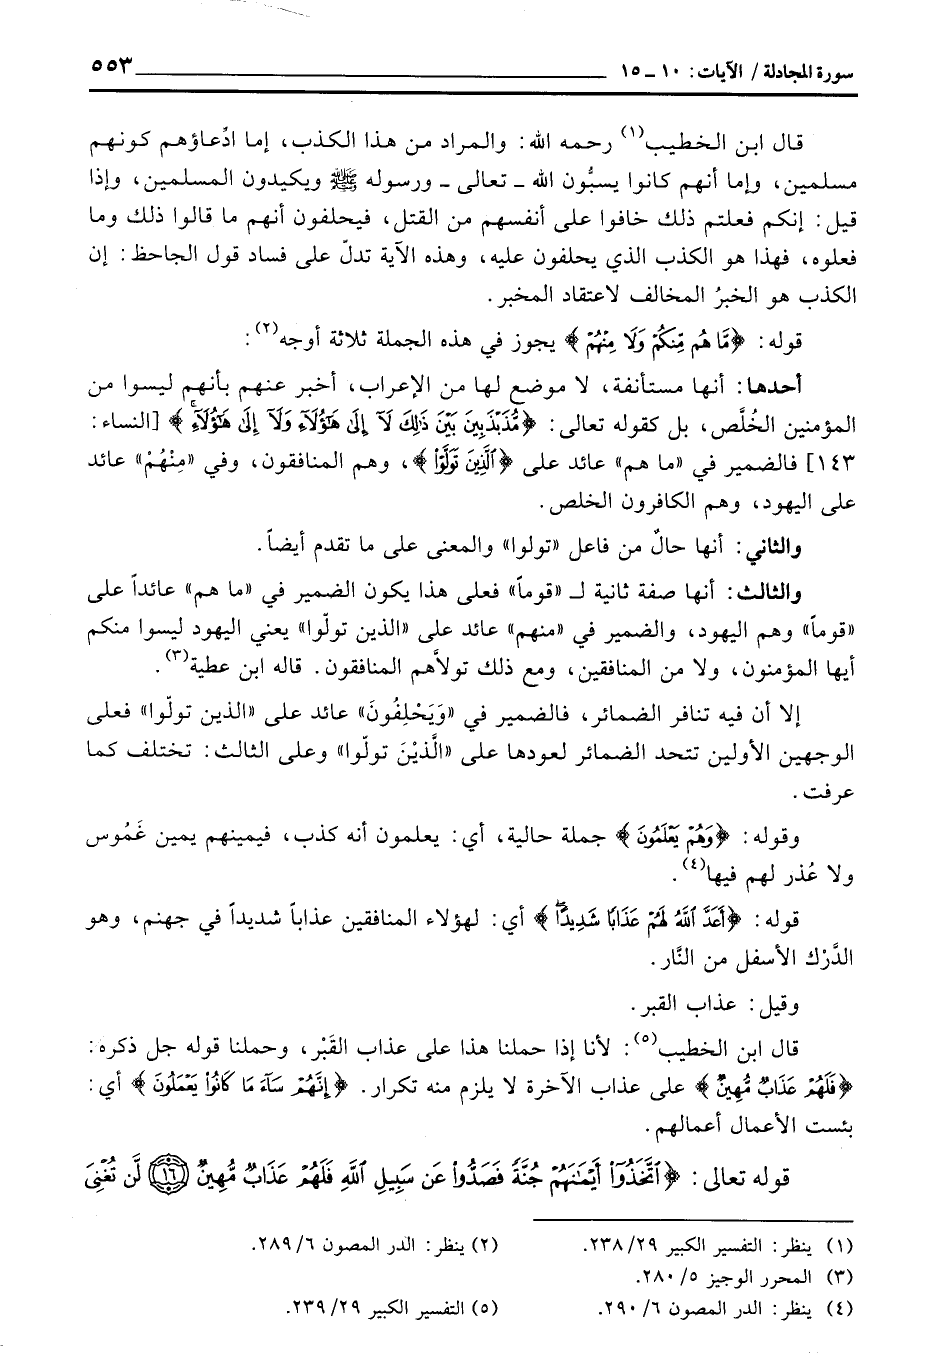 سورة المجادلة / الآيات: ١٠ ـ ١٥ ٥٥٣
قال ابن الخطيب(١) رحمه الله: والمراد من هذا الكذب، إما ادِّعاؤهم كونهم
مسلمين، وإما أنهم كانوا يسبُّون الله ـ تعالى ـ ورسوله ﷺ ويكيدون المسلمين، وإذا
قيل: إنكم فعلتم ذلك خافوا على أنفسهم من القتل، فيحلفون أنهم ما قالوا ذلك وما
فعلوه، فهذا هو الكذب الذي يحلفون عليه، وهذه الآية تدلّ على فساد قول الجاحظ: إن
الكذب هو الخبرُ المخالف لاعتقاد المخبر.
قوله: ﴿مَّا هُم مِّنكُمْ وَلَا مِنْهُمْ﴾ يجوز في هذه الجملة ثلاثة أوجه(٢):
أحدها: أنها مستأنفة، لا موضع لها من الإعراب، أخبر عنهم بأنهم ليسوا من
المؤمنين الخُلَّص، بل كقوله تعالى: ﴿مُّذَبْذَبِينَ بَيْنَ ذَٰلِكَ لَآ إِلَىٰ هَٰٓؤُلَآءِ وَلَآ إِلَىٰ هَٰٓؤُلَآءِۚ﴾ [النساء:
١٤٣] فالضمير في «ما هم» عائد على ﴿ٱلَّذِينَ تَوَلَّوْا۟﴾، وهم المنافقون، وفي «مِنْهُمْ» عائد
على اليهود، وهم الكافرون الخلص.
والثاني: أنها حالٌ من فاعل «تولوا» والمعنى على ما تقدم أيضاً.
والثالث: أنها صفة ثانية لـ «قوماً» فعلى هذا يكون الضمير في «ما هم» عائداً على
«قوماً» وهم اليهود، والضمير في «منهم» عائد على «الذين تولّوا» يعني اليهود ليسوا منكم
أيها المؤمنون، ولا من المنافقين، ومع ذلك تولاَّهم المنافقون. قاله ابن عطية(٣).
إلا أن فيه تنافر الضمائر، فالضمير في «وَيَحْلِفُونَ» عائد على «الذين تولّوا» فعلى
الوجهين الأولين تتحد الضمائر لعودها على «الَّذيْنَ تولّوا» وعلى الثالث: تختلف كما
عرفت.
وقوله: ﴿وَهُمْ يَعْلَمُونَ﴾ جملة حالية، أي: يعلمون أنه كذب، فيمينهم يمين غَمُوس
ولا عُذر لهم فيها(٤).
قوله: ﴿أَعَدَّ ٱللَّهُ لَهُمْ عَذَابًا شَدِيدًاۖ﴾ أي: لهؤلاء المنافقين عذاباً شديداً في جهنم، وهو
الدَّرْك الأسفل من النَّار.
وقيل: عذاب القبر.
قال ابن الخطيب(٥): لأنا إذا حملنا هذا على عذاب القَبْر، وحملنا قوله جل ذكره:
﴿فَلَهُمْ عَذَابٌ مُّهِينٌ﴾ على عذاب الآخرة لا يلزم منه تكرار. ﴿إِنَّهُمْ سَآءَ مَا كَانُوا۟ يَعْمَلُونَ﴾ أي:
بئست الأعمال أعمالهم.
قوله تعالى: ﴿ٱتَّخَذُوٓا۟ أَيْمَٰنَهُمْ جُنَّةً فَصَدُّوا۟ عَن سَبِيلِ ٱللَّهِ فَلَهُمْ عَذَابٌ مُّهِينٌ ١٦ لَّن تُغْنِىَ
(١) ينظر: التفسير الكبير ٢٩/ ٢٣٨. (٢) ينظر: الدر المصون ٦/ ٢٨٩.
(٣) المحرر الوجيز ٥/ ٢٨٠.
(٤) ينظر: الدر المصون ٦/ ٢٩٠. (٥) التفسير الكبير ٢٩/ ٢٣٩.